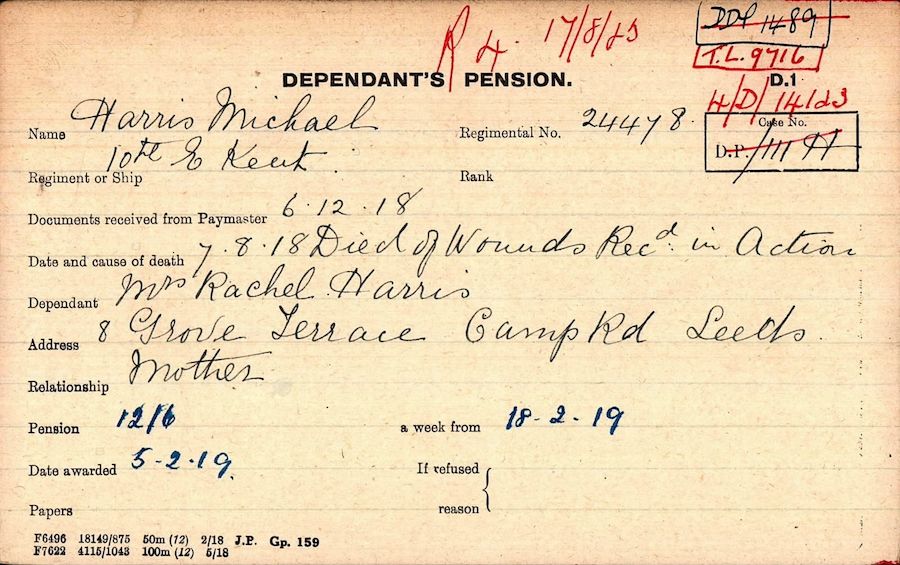 DDP 1489
R 4. 17/8/23
T.L. 9716
DEPENDANT'S PENSION.
D.1
4/D/14123
Name Harris Michael
Regimental No. 24478.
Case No.
D.P. /111 H
Regiment or Ship 10th E Kent.
Rank
Documents received from Paymaster 6.12.18
Date and cause of death 7.8.18 Died of Wounds Recd. in Action
Dependant Mrs Rachel Harris
Address 8 Grove Terrace Camp Rd Leeds.
Relationship Mother
Pension 12/6 a week from 18-2-19
Date awarded 5-2-19. If refused
Papers reason
F6496 18149/875 50m (12) 2/18 J.P. Gp. 159
F7622 4115/1043 100m (12) 5/18